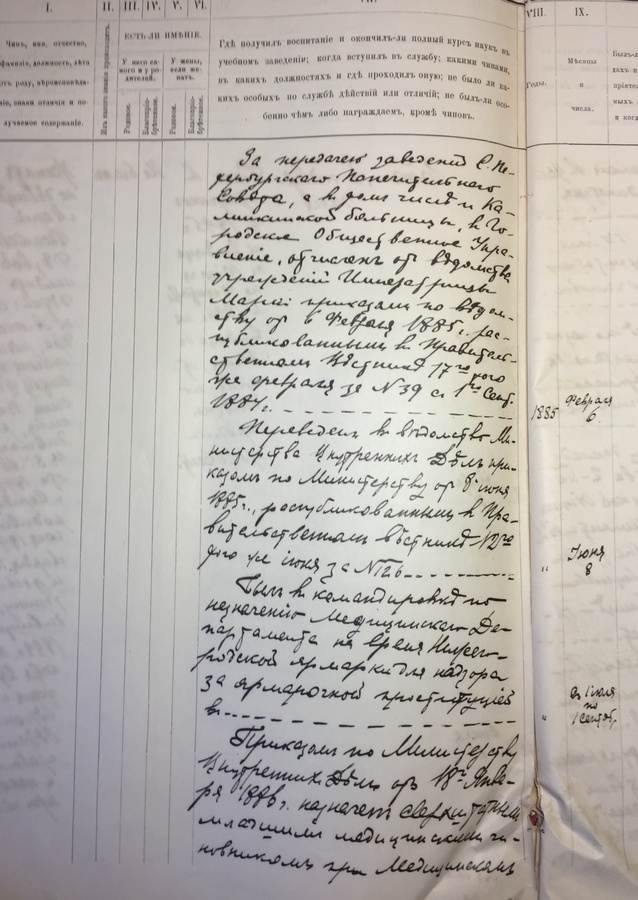 I.
II.
III.
IV.
V.
VI.
VIII.
IX.
Чинъ, имя, отчество,
фамилія, должность, лѣта
отъ роду, вѣроисповѣда-
ніе, знаки отличія и по-
лучаемое содержаніе.
Изъ какого званія происходитъ.
ЕСТЬ ЛИ ИМѢНІЕ.
У него са-
мого и у ро-
дителей.
У жены,
если же-
натъ.
Родовое.
Благопріо-
брѣтенное.
Родовое.
Благопріо-
брѣтенное.
Гдѣ получилъ воспитаніе и окончилъ-ли полный курсъ наукъ въ
учебномъ заведеніи; когда вступилъ въ службу; какими чинами,
въ какихъ должностяхъ и гдѣ проходилъ оную; не было ли ка-
кихъ особыхъ по службѣ дѣйствій или отличій; не былъ-ли осо-
бенно чѣмъ либо награждаемъ, кромѣ чиновъ.
Годы.
Мѣсяцы
и
числа.
За передачею заведеній С. Пе-
тербургскаго Попечительнаго
Совѣта, а въ томъ числѣ и Ка-
линкинской больницы, въ Го-
родское Общественное Упра-
вленіе, отчисленъ отъ вѣдомства
учрежденій Императрицы
Маріи приказомъ по вѣдом-
ству отъ 6 Февраля 1885 г. рас-
публикованнымъ въ Правитель-
ственномъ Вѣстникѣ 17го того
же февраля за № 39 съ 1го Сент.
1884 г.
1885
Февраля
6.
Переведенъ въ вѣдомство Ми-
нистерства Внутреннихъ Дѣлъ при-
казомъ по Министерству отъ 8 іюня
1885 г., распубликованнымъ въ Пра-
вительственномъ вѣстникѣ 12го
того же іюня за № 126
"
Іюня
8
Былъ въ командировкѣ по
назначенію Медицинскаго Де-
партамента на время Нижего-
родской ярмарки для надзора
за ярмарочной проституціей
въ
"
съ 1 іюля
по
1 Сентяб.
Приказомъ по Министерству
Внутреннихъ Дѣлъ отъ 18го Янва-
ря 1886 г. назначенъ сверхштатнымъ
младшимъ медицинскимъ чи-
новникомъ при Медицинскомъ